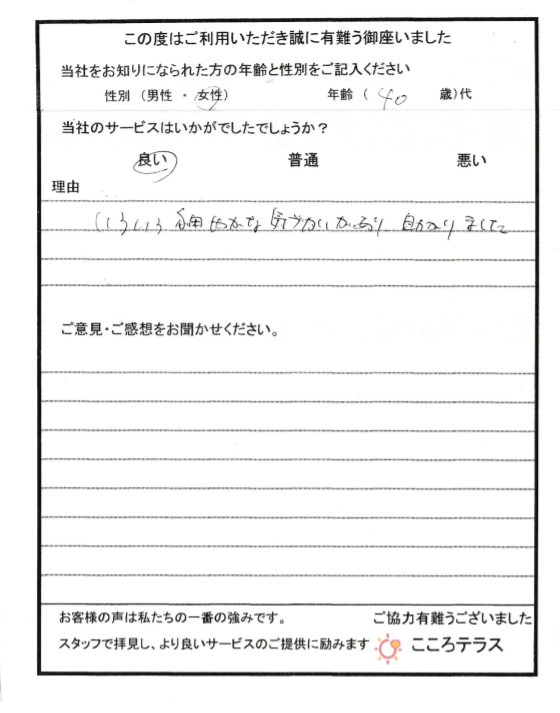 この度はご利用いただき誠に有難う御座いました
当社をお知りになられた方の年齢と性別をご記入ください
性別（男性 ・ 女性） 年齢（ 40 歳）代
当社のサービスはいかがでしたでしょうか？
良い 普通 悪い
理由
いろいろ細やかな気づかいがあり 助かりました
ご意見・ご感想をお聞かせください。
お客様の声は私たちの一番の強みです。 ご協力有難うございました
スタッフで拝見し、より良いサービスのご提供に励みます こころテラス